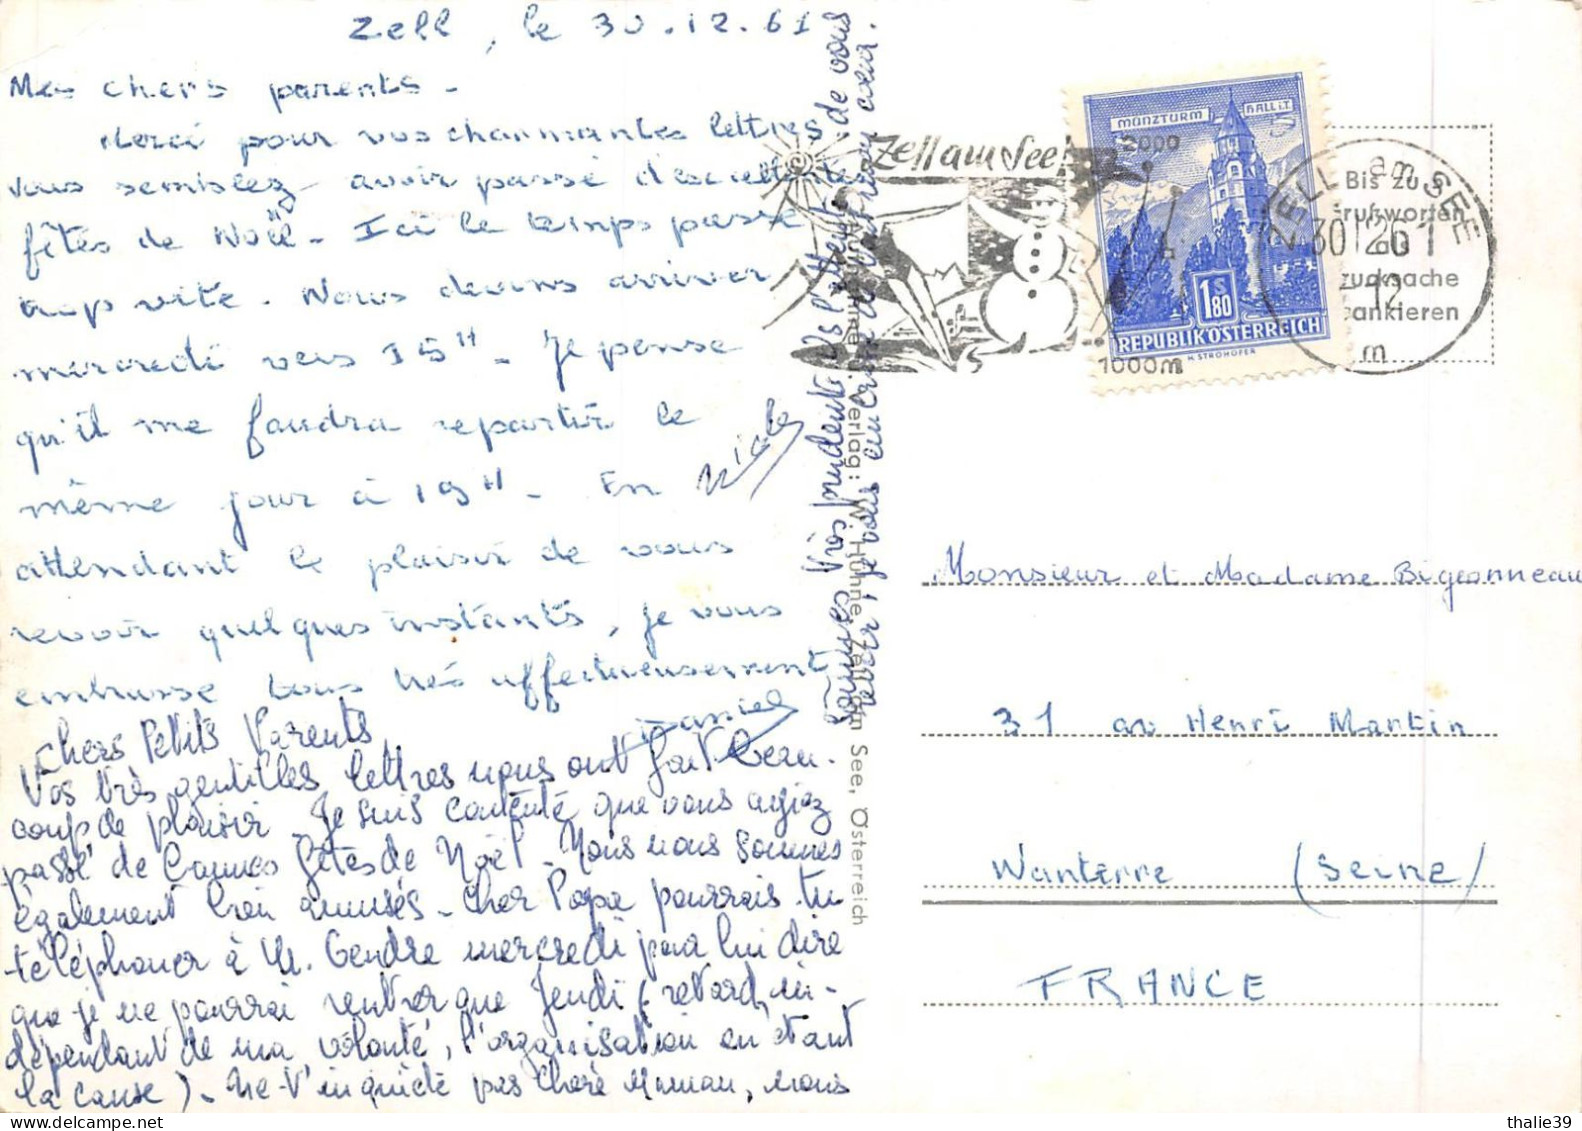 Zell, le 30.12.61
Mes chers parents -
Merci pour vos charmantes lettres
vous semblez avoir passé d'excellentes
fêtes de Noël - Ici le temps passe
trop vite. Nous devons arriver
mercredi vers 15H - Je pense
qu'il me faudra repartir le
même jour à 19H - En
attendant le plaisir de vous
revoir quelques instants, je vous
embrasse tous très affectueusement
Daniel
Chers Petits Parents
Vos très gentilles lettres nous ont fait beau-
coup de plaisir. Je suis contente que vous ayiez
passé de bonnes fêtes de Noël - Nous nous sommes
également bien amusés - Cher Papa pourrais-tu
téléphoner à M. Gendre mercredi pour lui dire
que je ne pourrai rentrer que Jeudi (retard, in-
dépendant de ma volonté, l'organisation en étant
la cause) - Ne t'inquiète pas chère Maman, nous
sommes très prudents. Dans l'attente de vous
revoir, je vous embrasse de tout mon cœur.
Nicole
Verlag: W. Hühne, Zell am See, Österreich
Zell am See
2000
1000m
MÜNZTURM HALL i.T.
S 1.80
REPUBLIK ÖSTERREICH
H. STROHOFER
ZELL am SEE
30 12 61
12
m
Bis zu 5
Grußworten
als
Drucksache
frankieren
Monsieur et Madame Bigeonneau
31 av Henri Martin
Nanterre (Seine)
FRANCE
thalie39